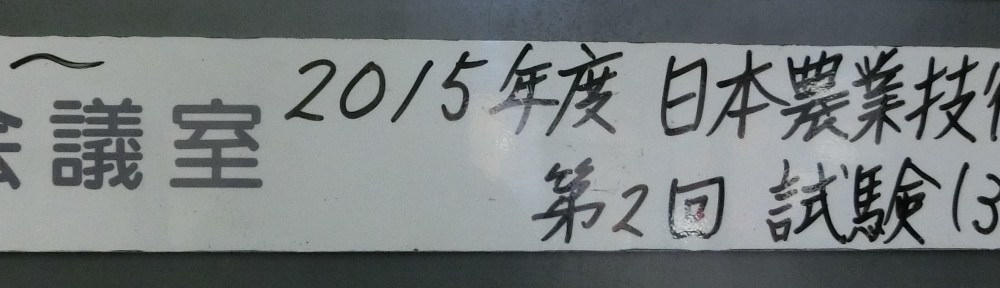 〜
会議室
2015年度 日本農業技術
第2回 試験(3